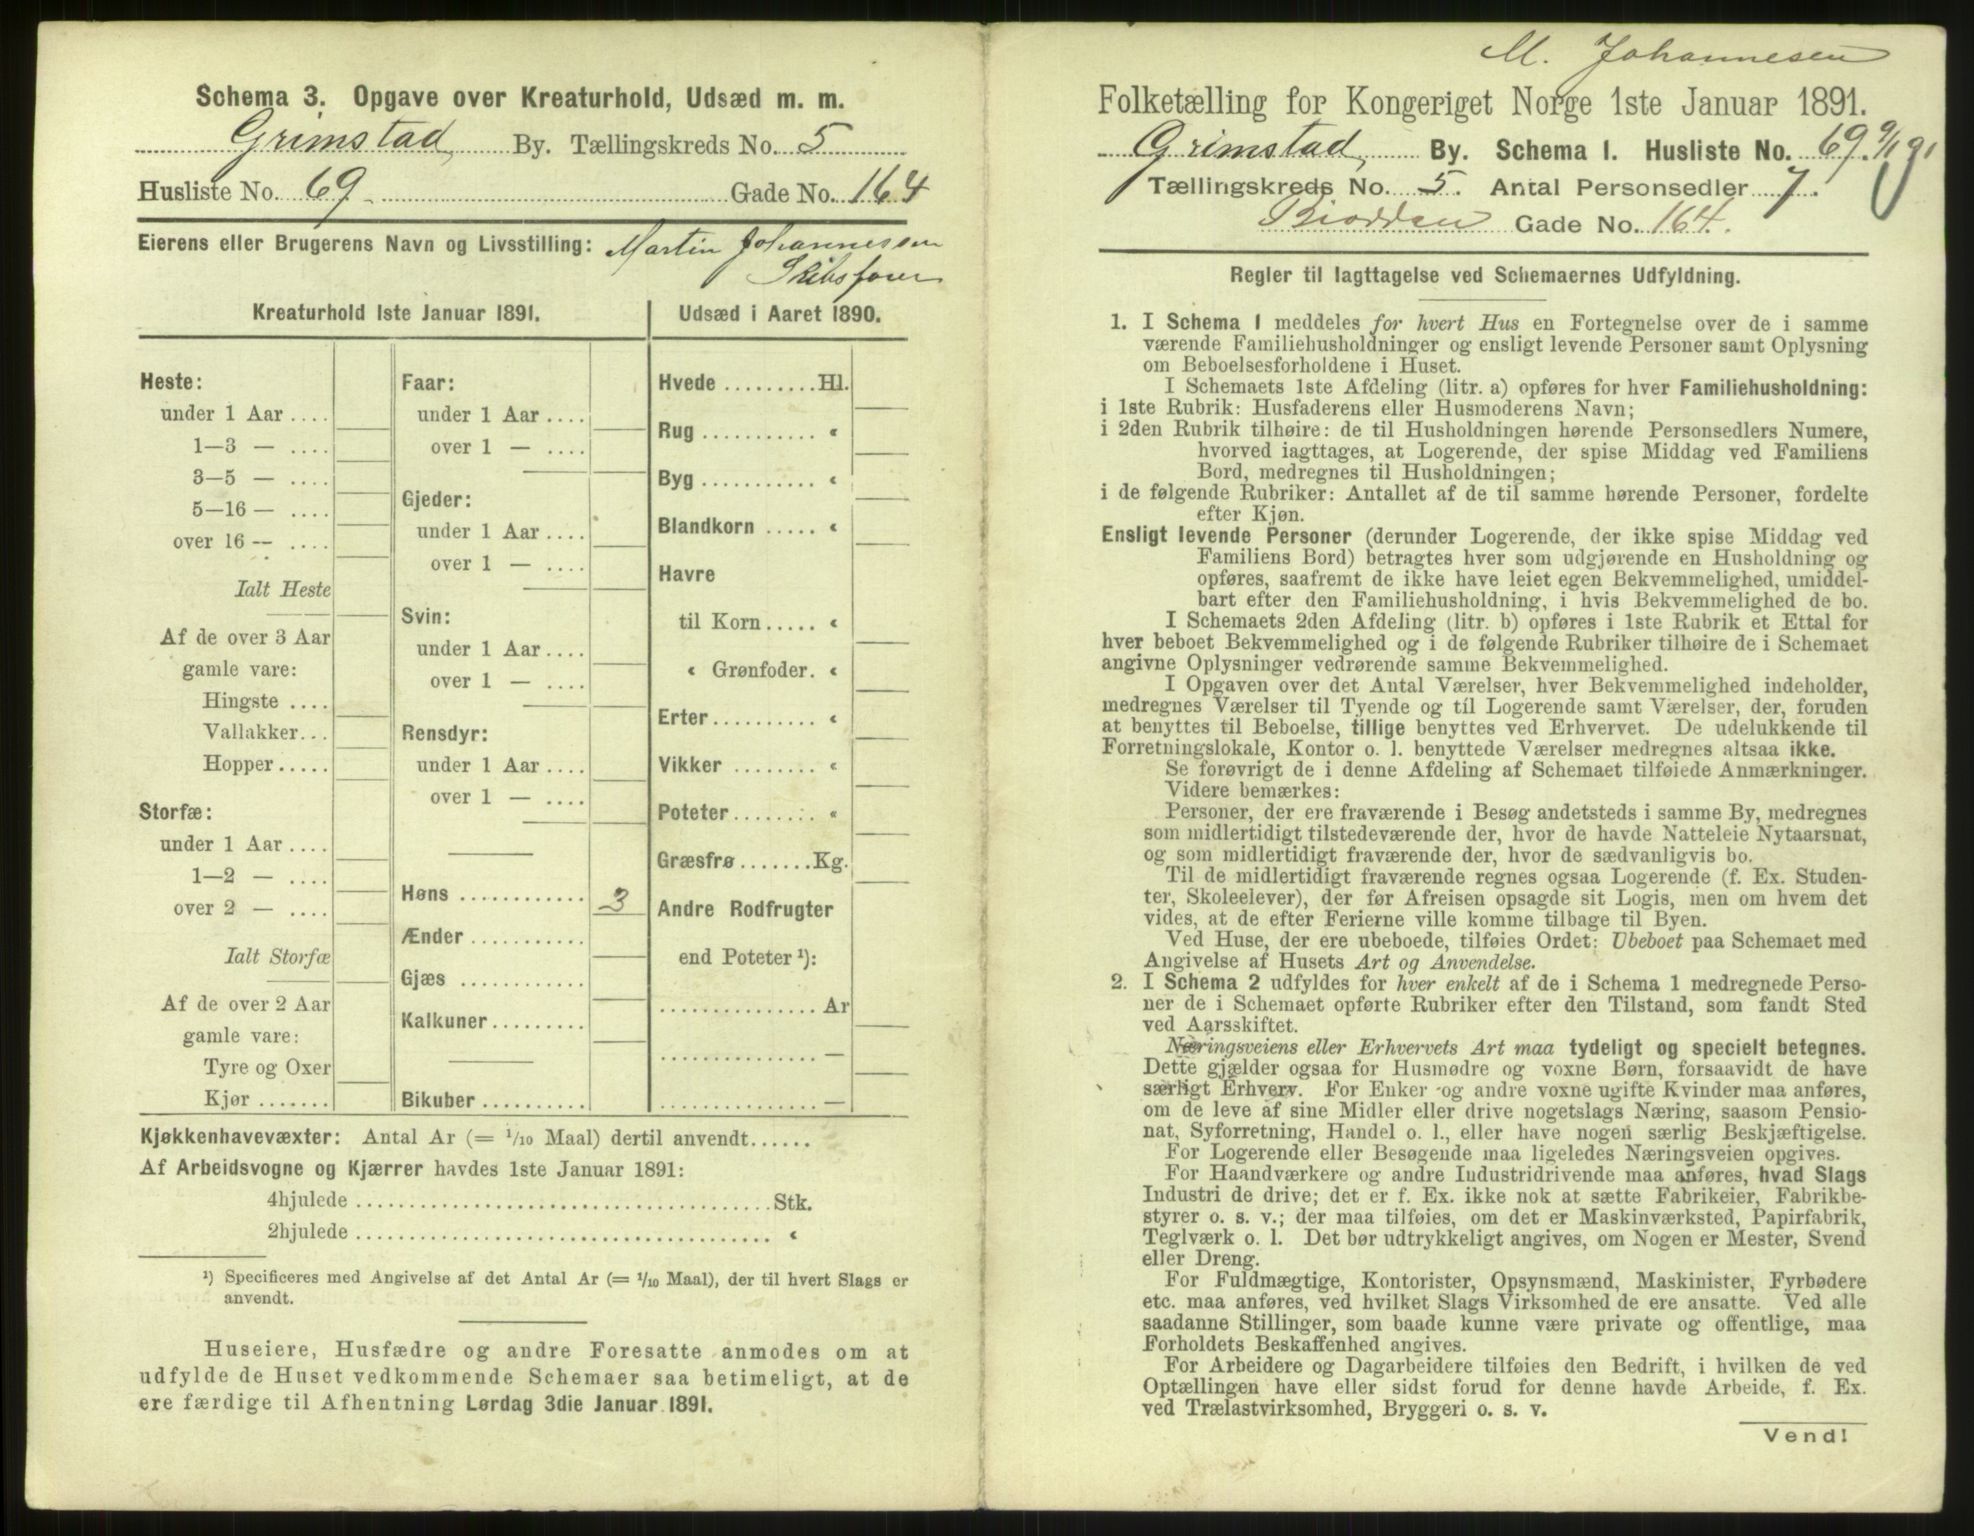 Schema 3. Opgave over Kreaturhold, Udsæd m. m.
Grimstad By. Tællingskreds No. 5
Husliste No. 69 Gade No. 164
Eierens eller Brugerens Navn og Livsstilling: Martin Johannessen
Skibsfører
Kreaturhold 1ste Januar 1891.
Heste:
under 1 Aar ....
1—3 — ....
3—5 — ....
5—16 — ....
over 16 — ....
Ialt Heste
Af de over 3 Aar
gamle vare:
Hingste ....
Vallakker...
Hopper.....
Storfæ:
under 1 Aar ....
1—2 — ....
over 2 — ....
Ialt Storfæ
Af de over 2 Aar
gamle vare:
Tyre og Oxer
Kjør .......
Faar:
under 1 Aar ....
over 1 — ....
Gjeder:
under 1 Aar ....
over 1 — ....
Svin:
under 1 Aar ....
over 1 — ....
Rensdyr:
under 1 Aar ....
over 1 — ....
Høns ............ 3
Ænder ...........
Gjæs ............
Kalkuner.........
Bikuber ..........
Udsæd i Aaret 1890.
Hvede .........Hl.
Rug ........... «
Byg ........... «
Blandkorn ..... «
Havre
til Korn ..... «
« Grønfoder. «
Erter.......... «
Vikker ........ «
Poteter........ «
Græsfrø .......Kg.
Andre Rodfrugter
end Poteter ¹):
............... Ar
............... —
............... —
Kjøkkenhavevæxter: Antal Ar (= 1/10 Maal) dertil anvendt......
Af Arbeidsvogne og Kjærrer havdes 1ste Januar 1891:
4hjulede ....................................... Stk.
2hjulede ....................................... «
¹) Specificeres med Angivelse af det Antal Ar (= 1/10 Maal), der til hvert Slags er
anvendt.
Huseiere, Husfædre og andre Foresatte anmodes om at
udfylde de Huset vedkommende Schemaer saa betimeligt, at de
ere færdige til Afhentning Lørdag 3die Januar 1891.
M. Johannesen
Folketælling for Kongeriget Norge 1ste Januar 1891.
Grimstad By. Schema 1. Husliste No. 69. 9/1 91
Tællingskreds No. 5. Antal Personsedler 7.
Gade No. 164.
Regler til Iagttagelse ved Schemaernes Udfyldning.
1. I Schema 1 meddeles for hvert Hus en Fortegnelse over de i samme
værende Familiehusholdninger og ensligt levende Personer samt Oplysning
om Beboelsesforholdene i Huset.
I Schemaets 1ste Afdeling (litr. a) opføres for hver Familiehusholdning:
i 1ste Rubrik: Husfaderens eller Husmoderens Navn;
i 2den Rubrik tilhøire: de til Husholdningen hørende Personsedlers Numere,
hvorved iagttages, at Logerende, der spise Middag ved Familiens
Bord, medregnes til Husholdningen;
i de følgende Rubriker: Antallet af de til samme hørende Personer, fordelte
efter Kjøn.
Ensligt levende Personer (derunder Logerende, der ikke spise Middag ved
Familiens Bord) betragtes hver som udgjørende en Husholdning og
opføres, saafremt de ikke have leiet egen Bekvemmelighed, umiddel-
bart efter den Familiehusholdning, i hvis Bekvemmelighed de bo.
I Schemaets 2den Afdeling (litr. b) opføres i 1ste Rubrik et Ettal for
hver beboet Bekvemmelighed og i de følgende Rubriker tilhøire de i Schemaet
angivne Oplysninger vedrørende samme Bekvemmelighed.
I Opgaven over det Antal Værelser, hver Bekvemmelighed indeholder,
medregnes Værelser til Tyende og til Logerende samt Værelser, der, foruden
at benyttes til Beboelse, tillige benyttes ved Erhvervet. De udelukkende til
Forretningslokale, Kontor o. l. benyttede Værelser medregnes altsaa ikke.
Se forøvrigt de i denne Afdeling af Schemaet tilføiede Anmærkninger.
Videre bemærkes:
Personer, der ere fraværende i Besøg andetsteds i samme By, medregnes
som midlertidigt tilstedeværende der, hvor de havde Natteleie Nytaarsnat,
og som midlertidigt fraværende der, hvor de sædvanligvis bo.
Til de midlertidigt fraværende regnes ogsaa Logerende (f. Ex. Studen-
ter, Skoleelever), der før Afreisen opsagde sit Logis, men om hvem det
vides, at de efter Ferierne ville komme tilbage til Byen.
Ved Huse, der ere ubeboede, tilføies Ordet: Ubeboet paa Schemaet med
Angivelse af Husets Art og Anvendelse.
2. I Schema 2 udfyldes for hver enkelt af de i Schema 1 medregnede Perso-
ner de i Schemaet opførte Rubriker efter den Tilstand, som fandt Sted
ved Aarsskiftet.
Næringsveiens eller Erhvervets Art maa tydeligt og specielt betegnes.
Dette gjælder ogsaa for Husmødre og voxne Børn, forsaavidt de have
særligt Erhverv. For Enker og andre voxne ugifte Kvinder maa anføres,
om de leve af sine Midler eller drive nogetslags Næring, saasom Pensio-
nat, Syforretning, Handel o. l., eller have nogen særlig Beskjæftigelse.
For Logerende eller Besøgende maa ligeledes Næringsveien opgives.
For Haandværkere og andre Industridrivende maa anføres, hvad Slags
Industri de drive; det er f. Ex. ikke nok at sætte Fabrikeier, Fabrikbe-
styrer o. s. v.; der maa tilføies, om det er Maskinværksted, Papirfabrik,
Teglværk o. l. Det bør udtrykkeligt angives, om Nogen er Mester, Svend
eller Dreng.
For Fuldmægtige, Kontorister, Opsynsmænd, Maskinister, Fyrbødere
etc. maa anføres, ved hvilket Slags Virksomhed de ere ansatte. Ved alle
saadanne Stillinger, som baade kunne være private og offentlige, maa
Forholdets Beskaffenhed angives.
For Arbeidere og Dagarbeidere tilføies den Bedrift, i hvilken de ved
Optællingen have eller sidst forud for denne havde Arbeide, f. Ex.
ved Trælastvirksomhed, Bryggeri o. s. v.
Vend!